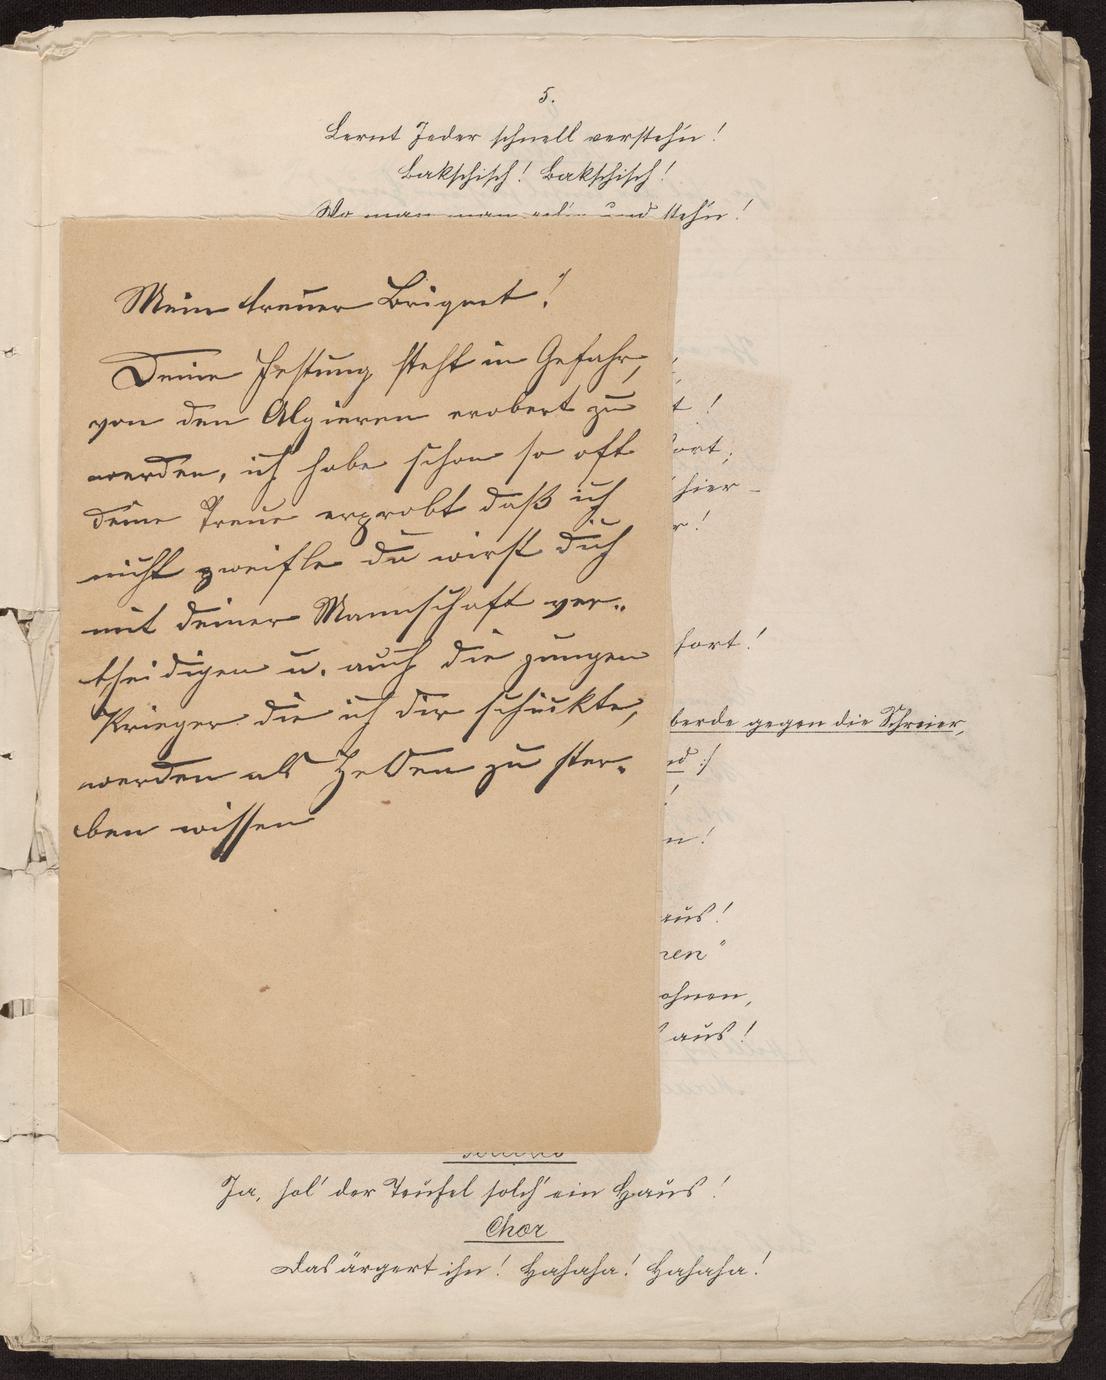 5.
Lernt Jeder schnell versteh'n!
Bakschisch! Bakschisch!
Wo man man geh'n und steh'n!
Mein treuer Briquet!
Deine Festung steht in Gefahr,
von den Algieren erobert zu
werden, ich habe schon so oft
deine Treue erprobt daß ich
nicht zweifle du wirst dich
mit deiner Mannschaft ver-
theidigen u. auch die jungen
Krieger die ich dir schickte,
werden als Helden zu ster-
ben wissen
t!
ort;
hier –
r!
fort!
berde gegen die Schreier,
nd :/
n!
aus!
nen"
ohnen,
s aus!
Ja, hol' der Teufel solch' ein Haus!
Chor
Das ärgert ihn! Hahaha! Hahaha!